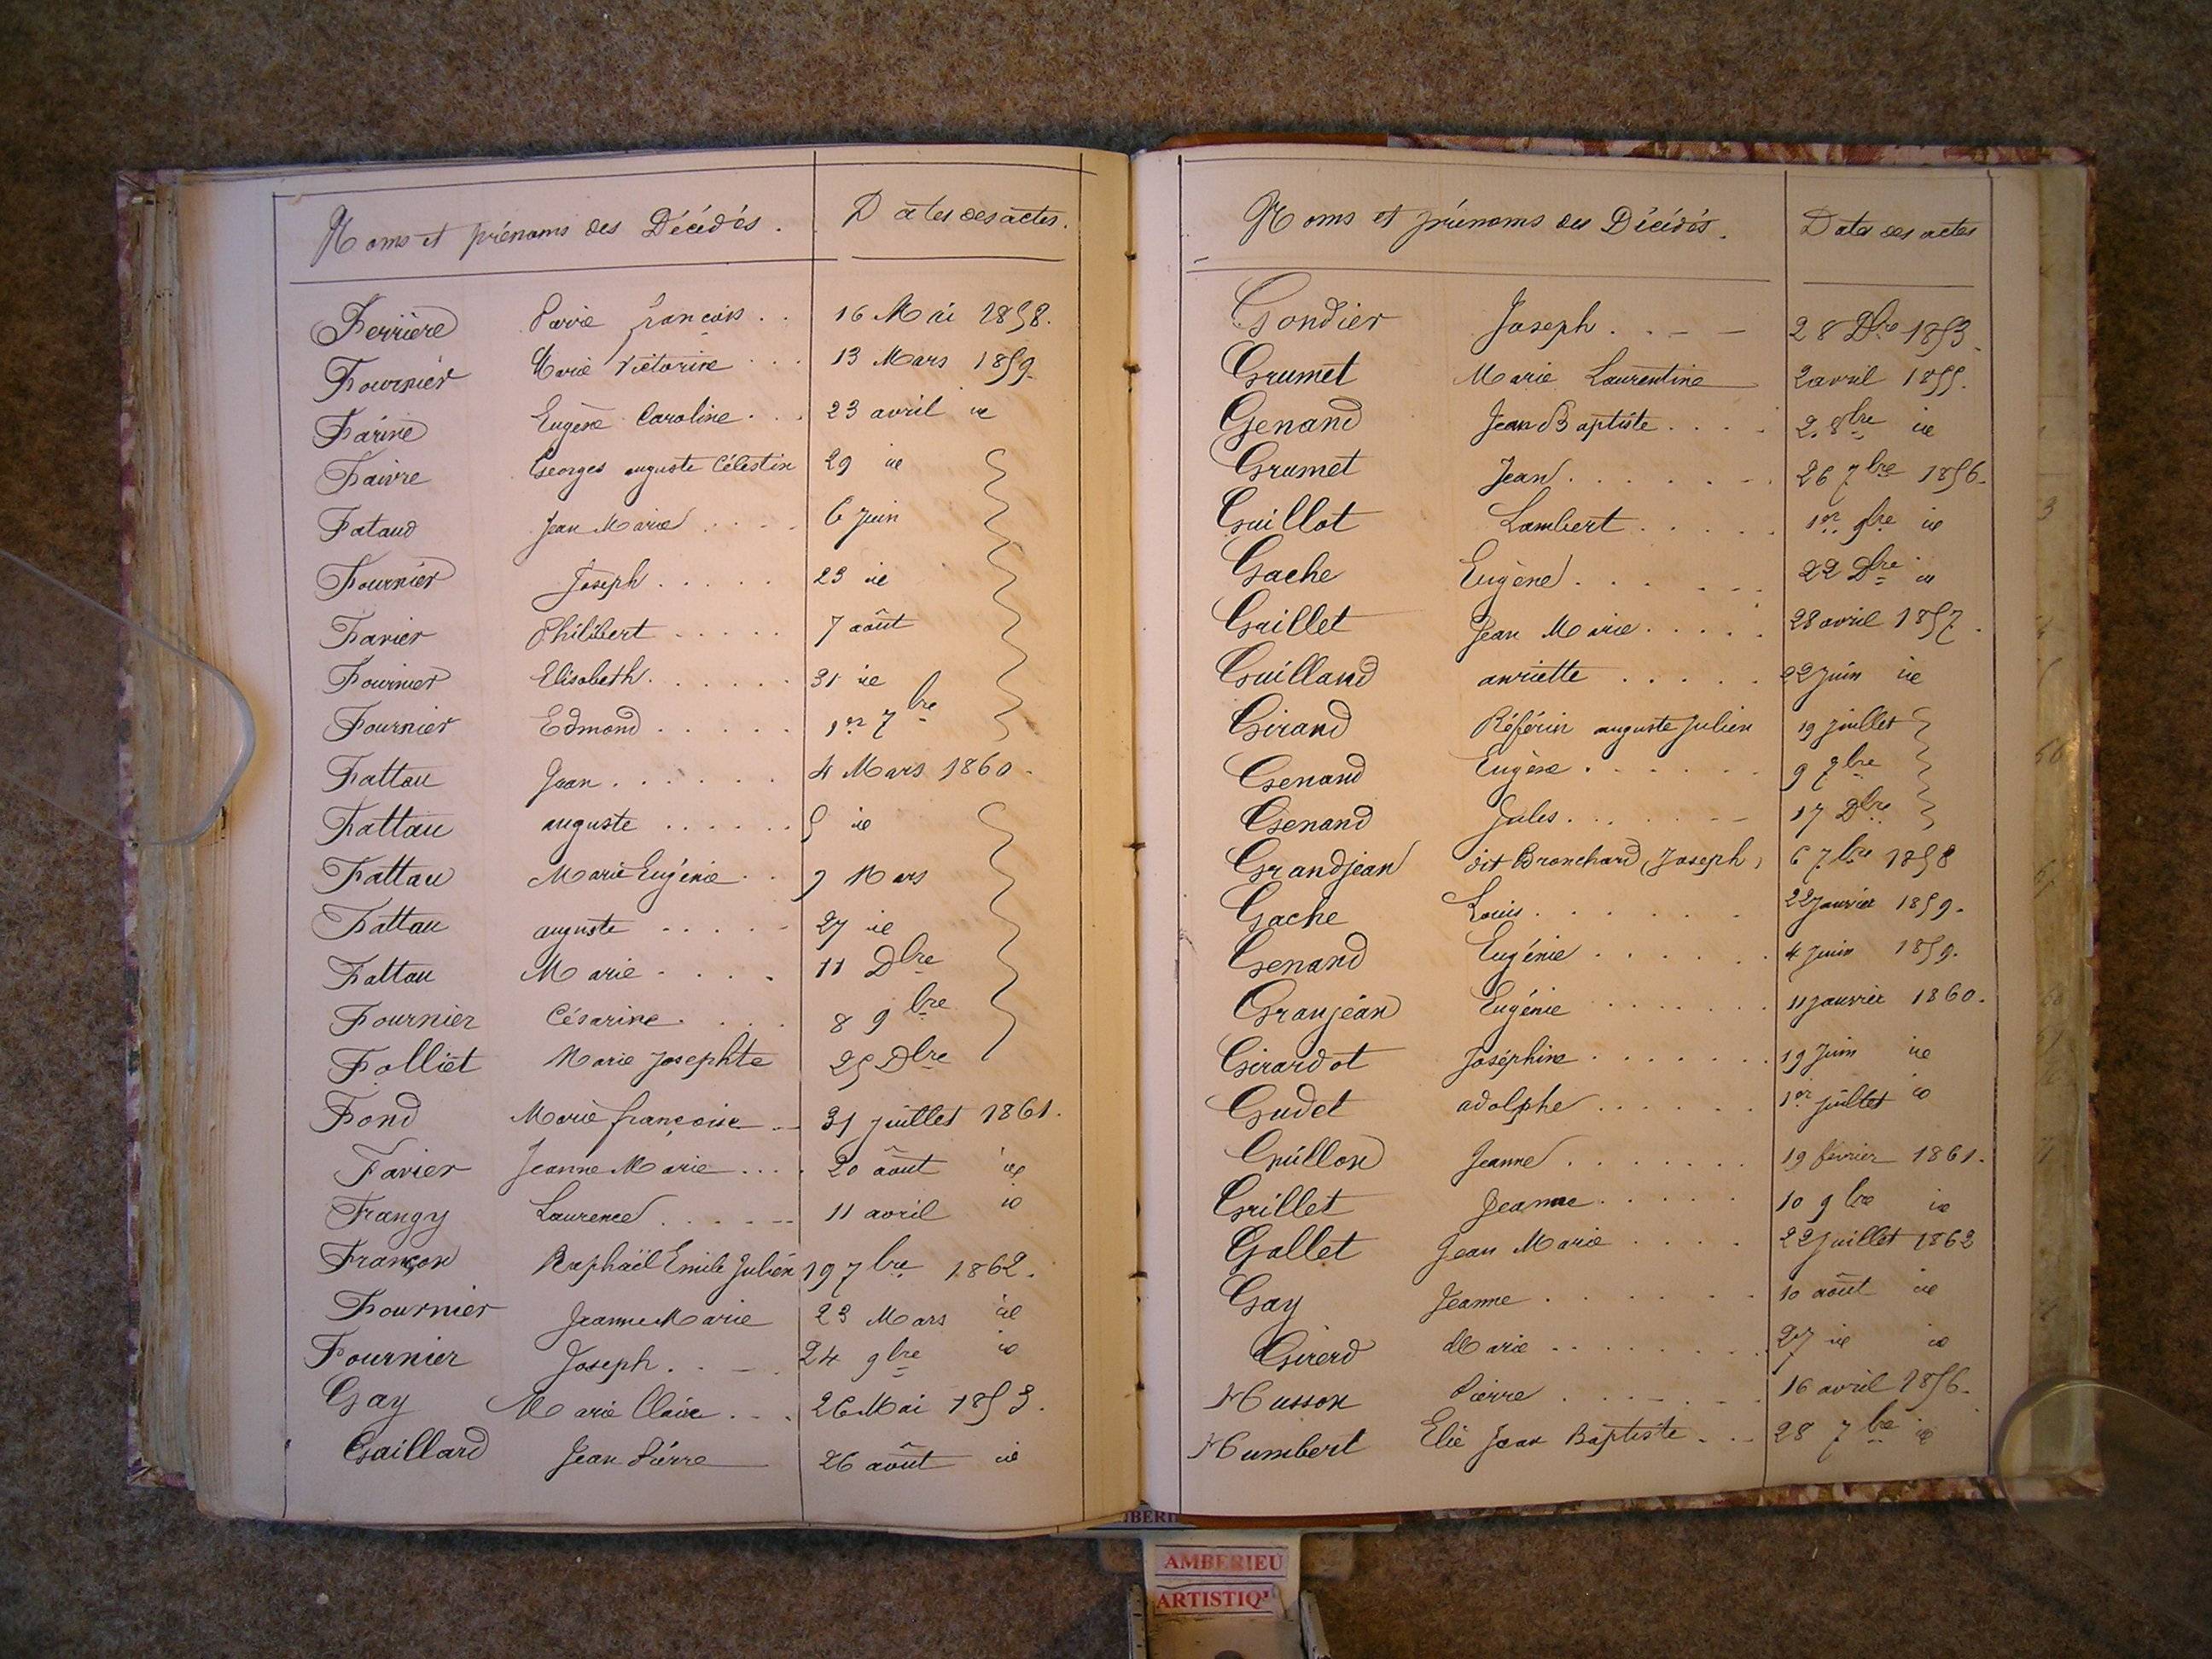 Noms et prénoms des Décédés. Dates des actes.
Ferrière Pierre François . . 16 Mai 1858.
Fournier Marie Victorine . . . 13 Mars 1859.
Farine Eugène Caroline . . . 23 avril id
Faivre Georges auguste Célestin 29 id
Fataud Jean Marie . . . . 6 Juin
Fournier Joseph . . . . . 23 id
Favier Philibert . . . . . 7 août
Fournier Elisabeth . . . . . . 31 id
Fournier Edmond . . . . . 1er 7bre
Fattau Jean . . . . . . 4 Mars 1860.
Fattau auguste . . . . . . 5 id
Fattau Marie Eugénie . . 9 Mars
Fattau auguste . . . . . 27 id
Fattau Marie . . . . 11 Dbre
Fournier Césarine . . . . 8 9bre
Folliet Marie Josephte 25 Dbre
Fond Marie françoise . . 31 juillet 1861.
Favier Jeanne Marie . . . . 20 août id
Frangy Laurence . . . . . 11 avril id
Françon Raphaël Emile Julien 19 7bre 1862.
Fournier Jeanne Marie 23 Mars id
Fournier Joseph . . . 24 9bre id
Gay Marie Claire . . . 26 Mai 1853.
Gaillard Jean Pierre 26 août id
Noms et prénoms des Décédés. Dates des actes
Gondier Joseph . . . . 28 Dbre 1853.
Grumet Marie Laurentine 2 avril 1855.
Genand Jean Baptiste . . . . 2. 8bre id
Grumet Jean . . . . . . 26 7bre 1856.
Guillot Lambert . . . . . 1er 9bre id
Gache Eugène . . . . . . 22 Dbre id
Gaillet Jean Marie . . . . . 28 avril 1857.
Guilland anriette . . . . . 22 Juin id
Girand auguste Julien 19 juillet
Genand Eugène . . . . . . 9 9bre
Genand Jules . . . . . . 17 Dbre
Grandjean dit Bronchard (Joseph) 6 7bre 1858
Gache Louis . . . . . . 22 Janvier 1859.
Genand Eugénie . . . . . . 4 Juin 1859.
Granjean Eugénie . . . . . . . 11 janvier 1860.
Girardot Joséphine . . . . . . . 19 Juin id
Gudet adolphe . . . . . . 1er juillet id
Guillon Jeanne . . . . . . . 19 février 1861.
Grillet Jeanne . . . . . 10 9bre id
Gallet Jean Marie . . . . 22 juillet 1862
Gay Jeanne . . . . . . . 10 août id
Girerd Marie . . . . . . . . 27 id id
Husson Pierre . . . . . . 16 avril 1856.
Humbert Elie Jean Baptiste . . . 28 7bre id
AMBERIEU
ARTISTIQ'